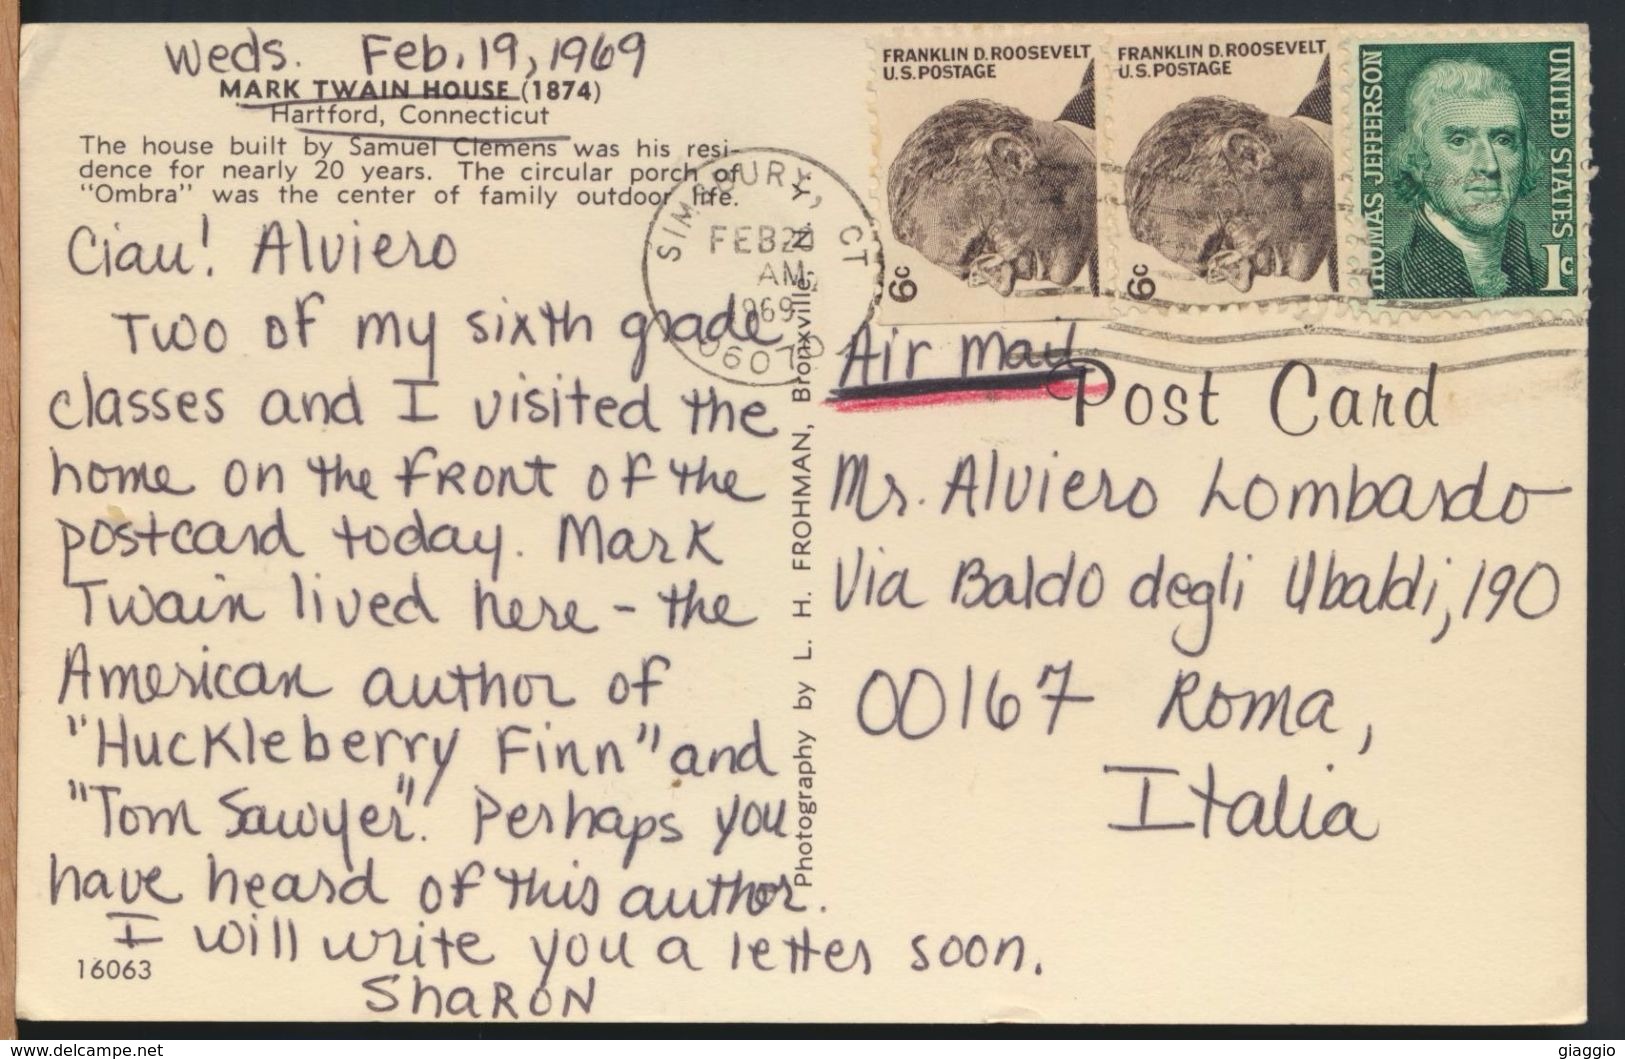 Weds. Feb. 19, 1969
MARK TWAIN HOUSE (1874)
Hartford, Connecticut
The house built by Samuel Clemens was his resi-
dence for nearly 20 years. The circular porch of
"Ombra" was the center of family outdoor life.
Ciau! Alviero
Two of my sixth grade
classes and I visited the
home on the front of the
postcard today. Mark
Twain lived here - the
American author of
"Huckleberry Finn" and
"Tom Sawyer". Perhaps you
have heard of this author.
I will write you a letter soon.
Sharon
16063
Photography by L. H. FROHMAN, Bronxville, N. Y.
SIMSBURY, CT
FEB 20
AM
1969
06070
FRANKLIN D. ROOSEVELT
U.S. POSTAGE
6c
FRANKLIN D. ROOSEVELT
U.S. POSTAGE
6c
THOMAS JEFFERSON
UNITED STATES
1c
Air Mail
Post Card
Mr. Alviero Lombardo
Via Baldo degli Ubaldi, 190
00167 Roma,
Italia
www.delcampe.net
giaggio